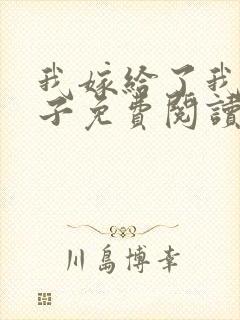 我嫁給了我
子免費閱讀
川島博幸